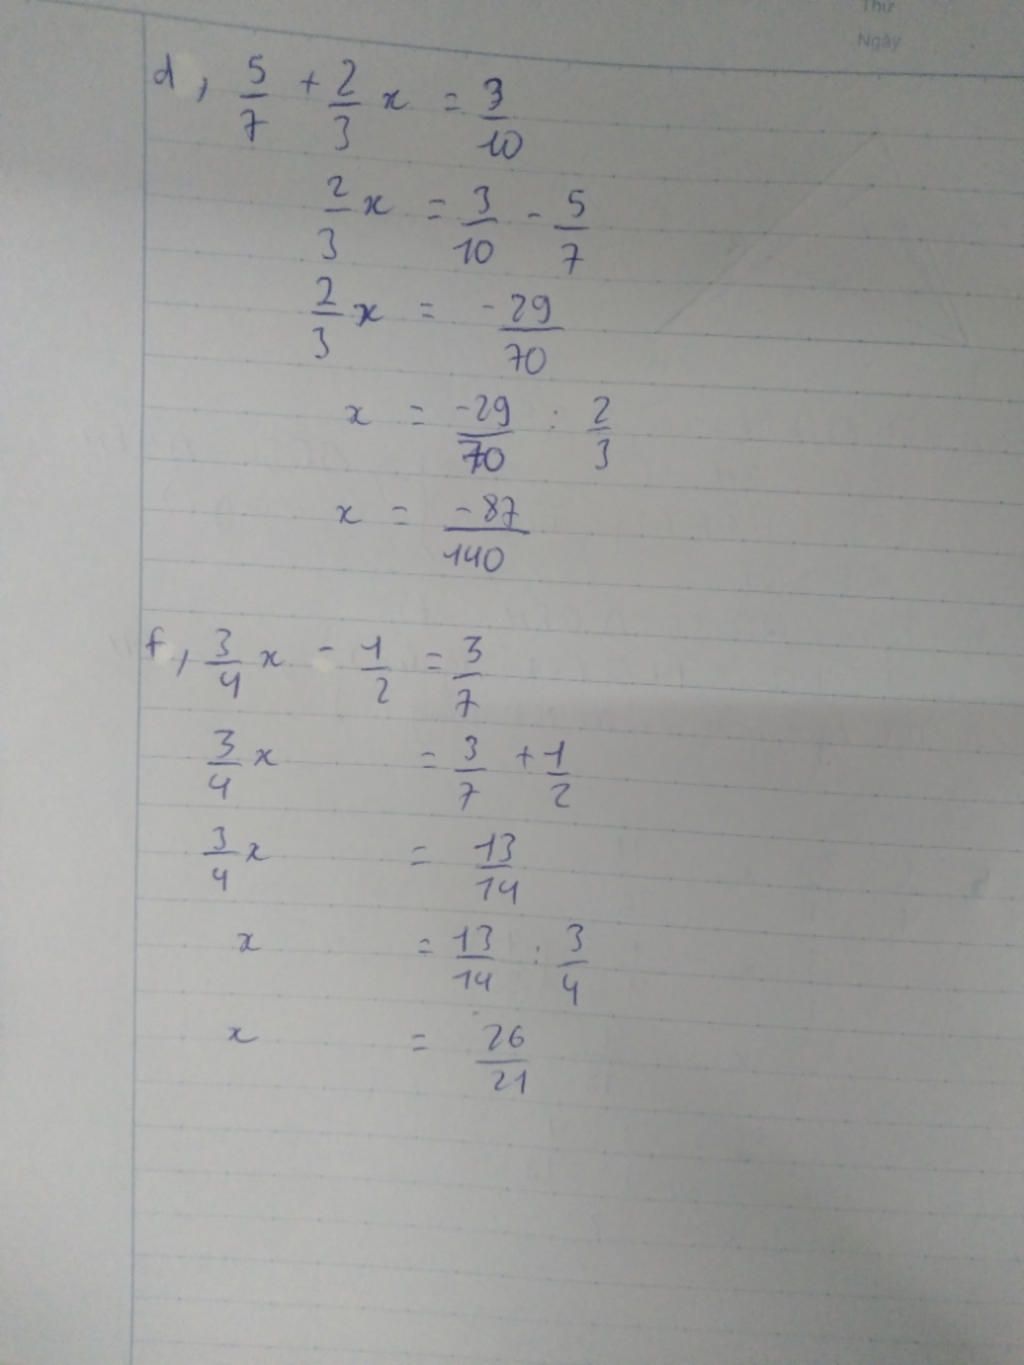 Thứ
Ngày
d, 5/7 + 2/3 x = 3/10
2/3 x = 3/10 - 5/7
2/3 x = -29/70
x = -29/70 : 2/3
x = -87/140
f, 3/4 x - 1/2 = 3/7
3/4 x = 3/7 + 1/2
3/4 x = 13/14
x = 13/14 : 3/4
x = 26/21